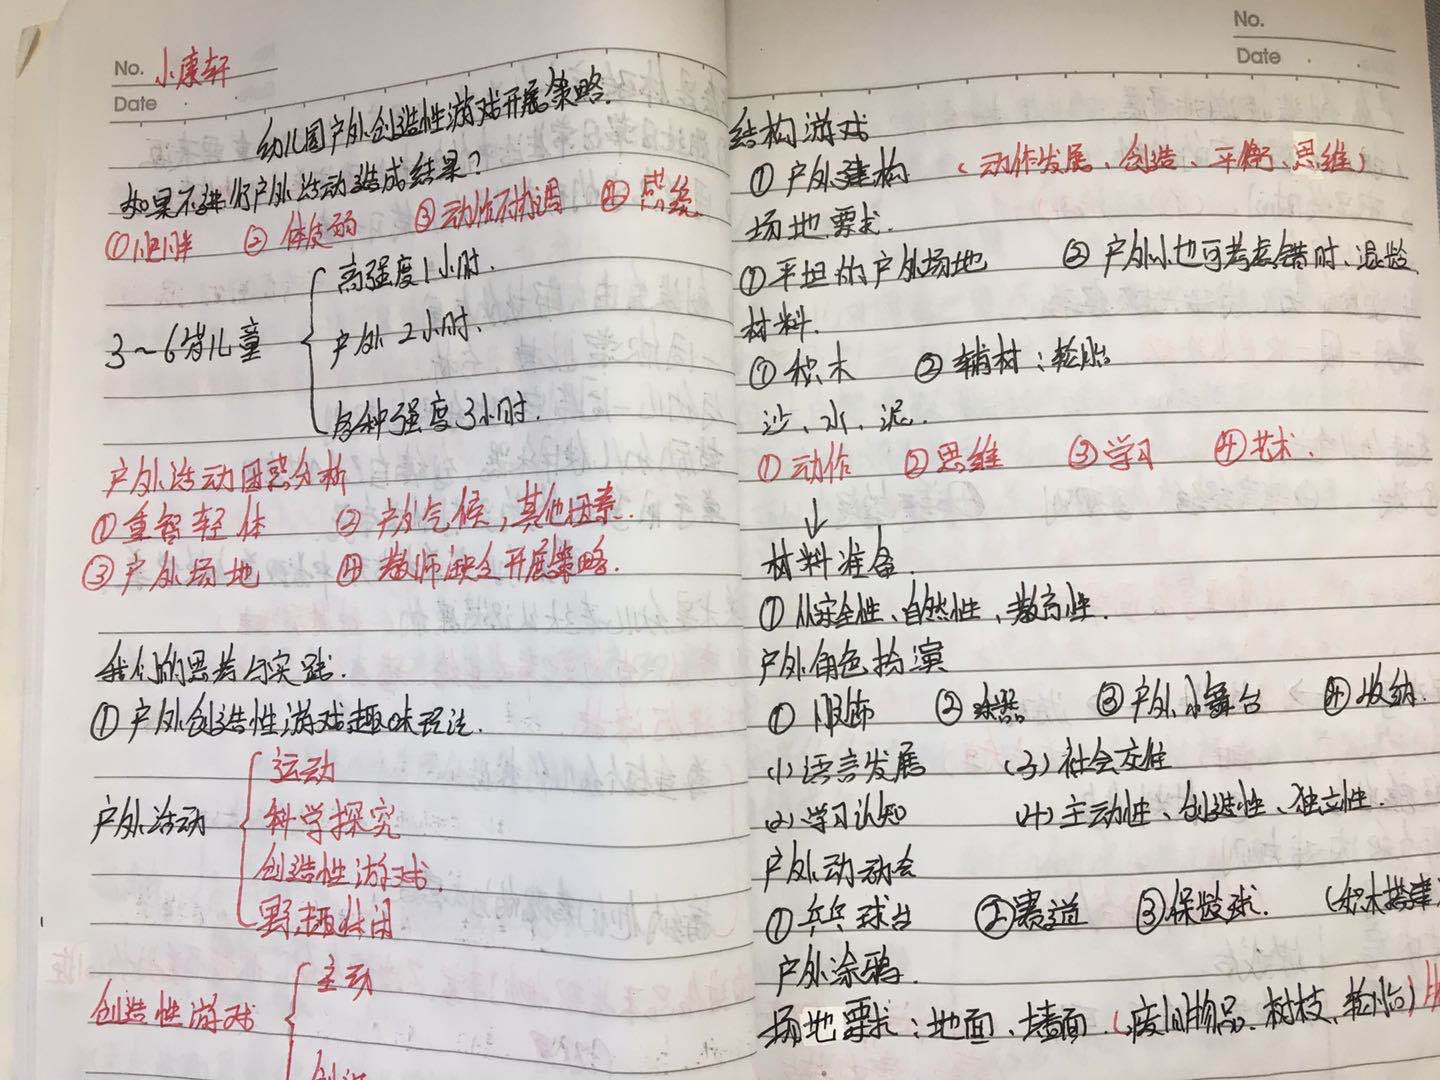 No. 小康轩
Date
幼儿园户外创造性游戏开展策略.
如果不进行户外活动造成结果？
①肥胖 ②体质弱 ③动作不协调 ④感统
3～6岁儿童
高强度1小时.
户外2小时、
各种强度3小时.
户外活动困惑分析
①重智轻体 ②户外气候，其他因素.
③户外场地 ④教师缺乏开展策略.
我们的思考与实践.
①户外创造性游戏趣味玩法.
户外活动
运动
科学探究
创造性游戏.
野趣休闲
创造性游戏
主动
创造
No.
Date
结构游戏
①户外建构 (动作发展、创造、平衡、思维)
场地要求.
①平坦的户外场地 ②户外小也可考虑错时、混龄
材料.
①积木 ②辅材：轮胎
沙、水、泥.
①动作 ②思维 ③学习 ④艺术.
↓
材料准备.
①从安全性、自然性、教育性.
户外角色扮演
①服饰 ② ③户外小舞台 ④收纳.
(1)语言发展 (3)社会交往
(2)学习认知 (4)主动性、创造性、独立性.
户外动动会
①乒乓球台 ②赛道 ③保龄球. (积木搭建)
户外涂鸦.
场地要求：地面、墙面.(废旧物品、树枝、轮胎)